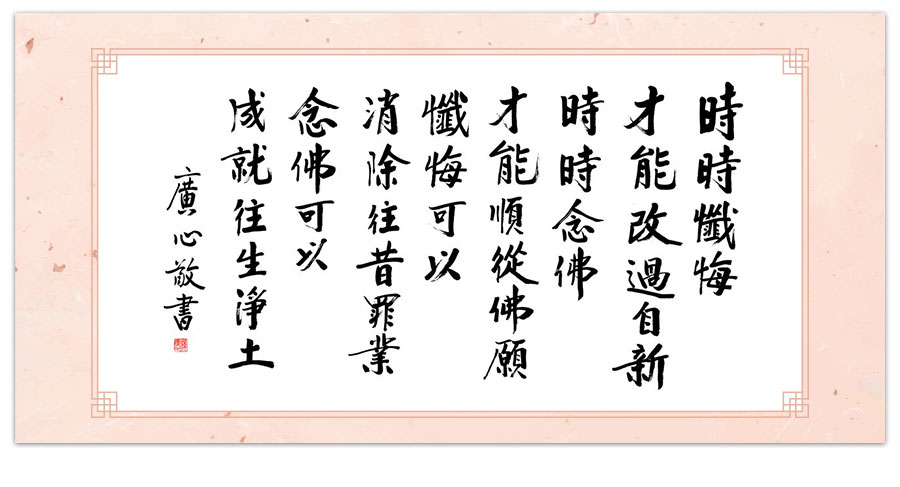 時時懺悔
才能改過自新
時時念佛
才能順從佛願
懺悔可以
消除往昔罪業
念佛可以
成就往生淨土
廣心敬書